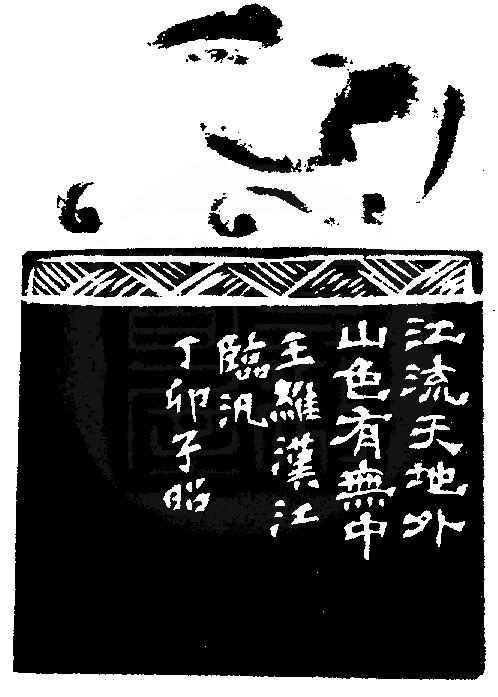 江流天地外
山色有無中
王維漢江
臨汎
丁卯子昭